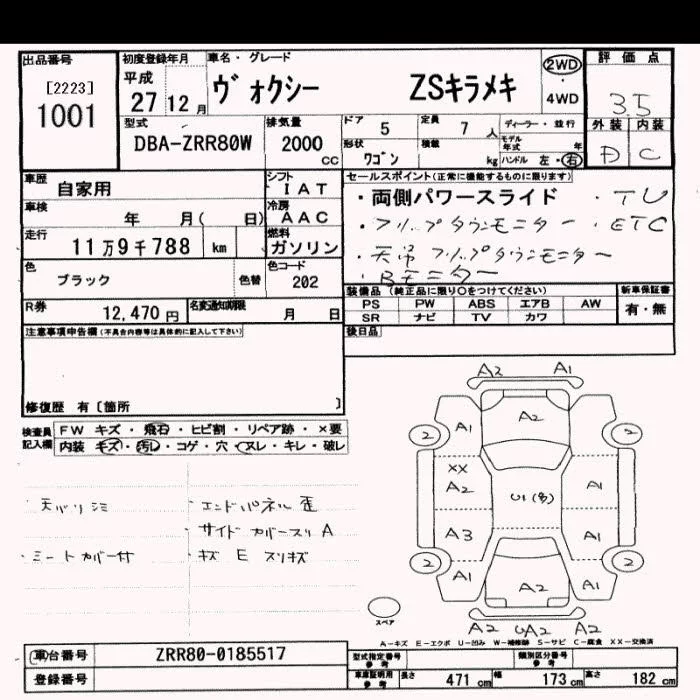 出品番号
[2223]
1001
初度登録年月
平成
27 12 月
車名・グレード
ヴォクシー ZSキラメキ
2WD
・
4WD
評価点
3.5
外装 内装
D C
型式
DBA-ZRR80W
排気量
2000
CC
ドア 5
定員 7 人
ディーラー・並行
モデル年式 年
形状 ワゴン
積載 kg
ハンドル 左・右
車歴
自家用
シフト
IAT
車検
年 月( 日)
冷房
AAC
走行
11万9千788 km
燃料
ガソリン
色
ブラック
色替
色コード
202
R券
12,470 円
名変通知期限
月 日
セールスポイント(正常に機能するものに限ります)
・両側パワースライド ・TV
・フリップダウンモニター ・ETC
・天吊フリップダウンモニター
・Bモニター
装備品(純正品に限り○をつけてください)
PS PW ABS エアB AW
SR ナビ TV カワ
新車保証書
有・無
後日品
注意事項申告欄(不具合内容等は具体的に記入して下さい)
修復歴 有〔箇所 〕
検査員記入欄
FW キズ・飛石・ヒビ割・リペア跡・×要
内装 キズ・汚レ・コゲ・穴・ヌレ・キレ・破レ
・天バリシミ
・シートカバー付
・エンドパネル歪
・サイドカバースリA
・キズ E スリキズ
A2 A1
A2
2 A1 2
XX
A2 U1(多) A1
A3 A1
2 A1 A1 2
A2
A2 UA2 A2
スペア
A-キズ E-エクボ U-凹み W-補修跡 S-サビ C-腐食 XX-交換済
車台番号 ZRR80-0185517
登録番号
型式指定番号
参考
類別区分番号
参考
車庫証明用
参考
長さ 471 cm
幅 173 cm
高さ 182 cm